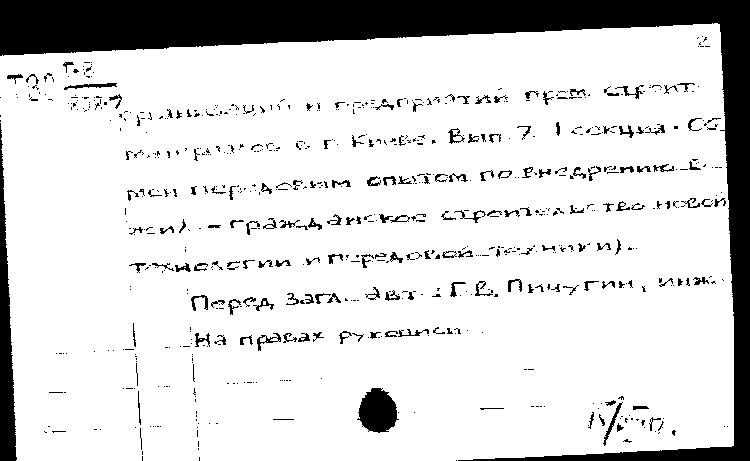 2
Т80 Г-8
организаций и предприятий пром. строит.
материалов в г. Киеве. Вып. 7. 1 секция. Об
мен передовым опытом по внедрению в
жил.-гражданское строительство новой
технологии и передовой техники).
Перед загл. авт.: Г.В. Пичугин, инж.
На правах рукописи